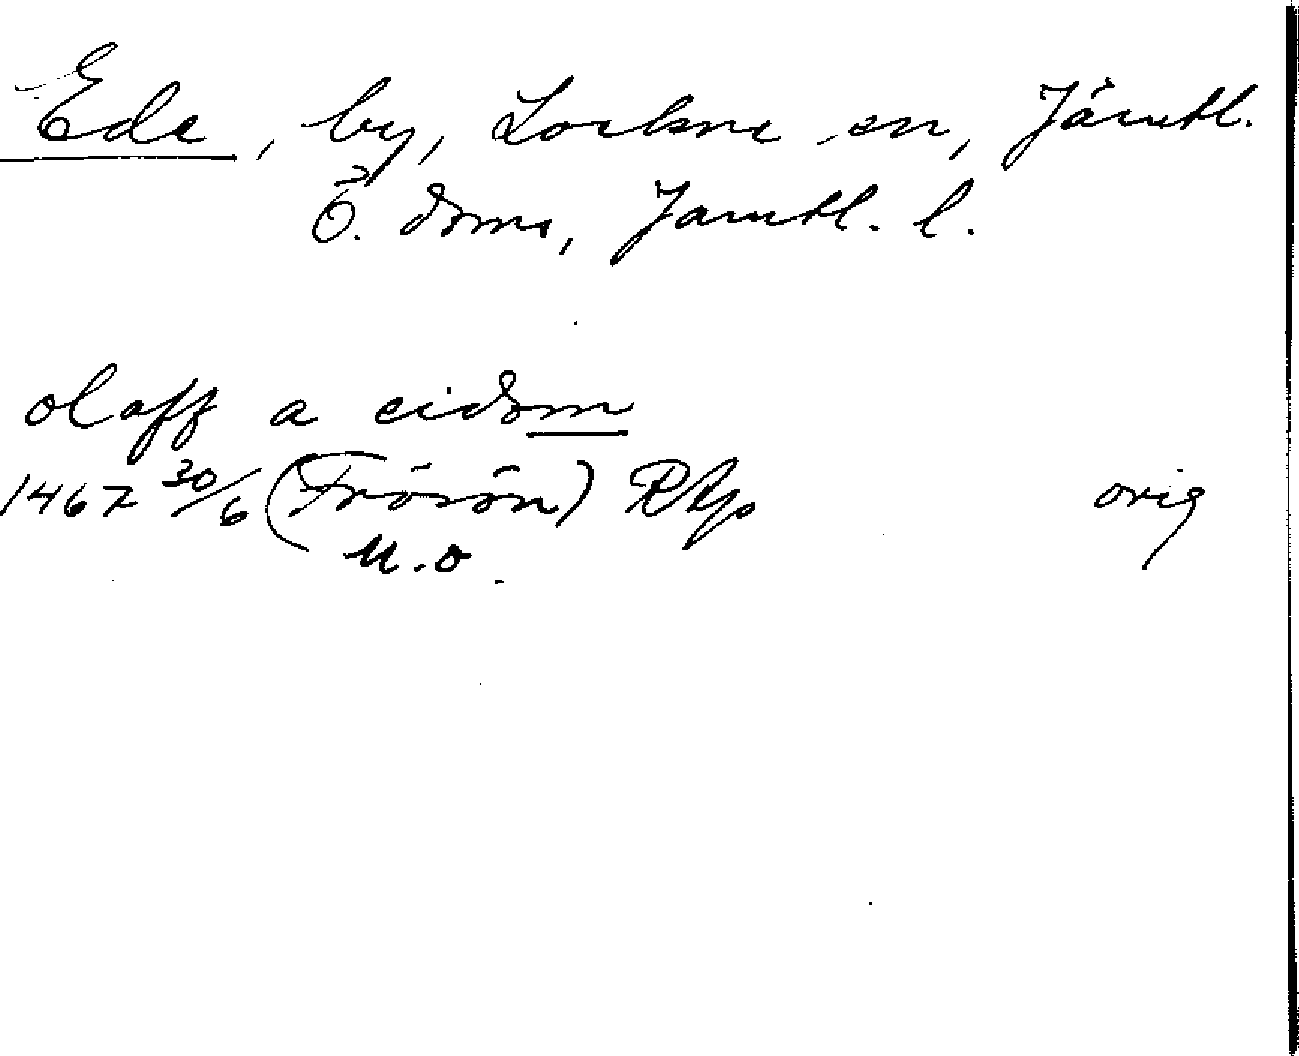 Ede, by, Lockne sn, Jämtl.
Ö. doms, Jämtl. l.
olaff a eidom
1467 30/6 (Frösön) RAp orig
U. o.